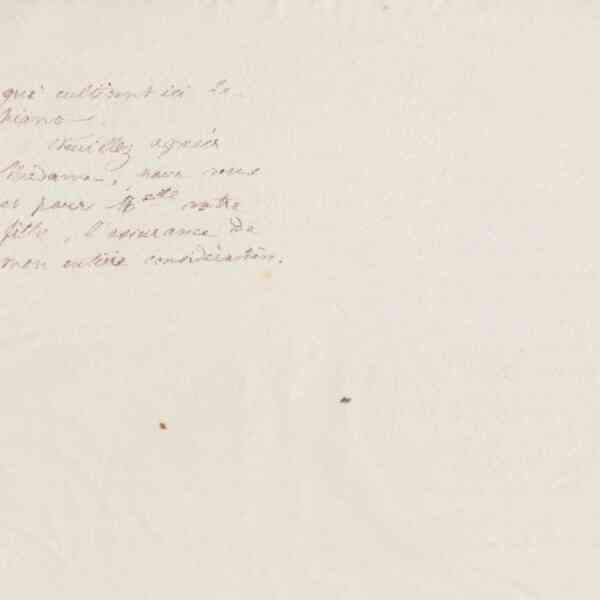 qui cultivent ici le
piano.
Veuillez agréer
Madame, pour vous
et pour Melle votre
fille, l'assurance de
mon entière considération.